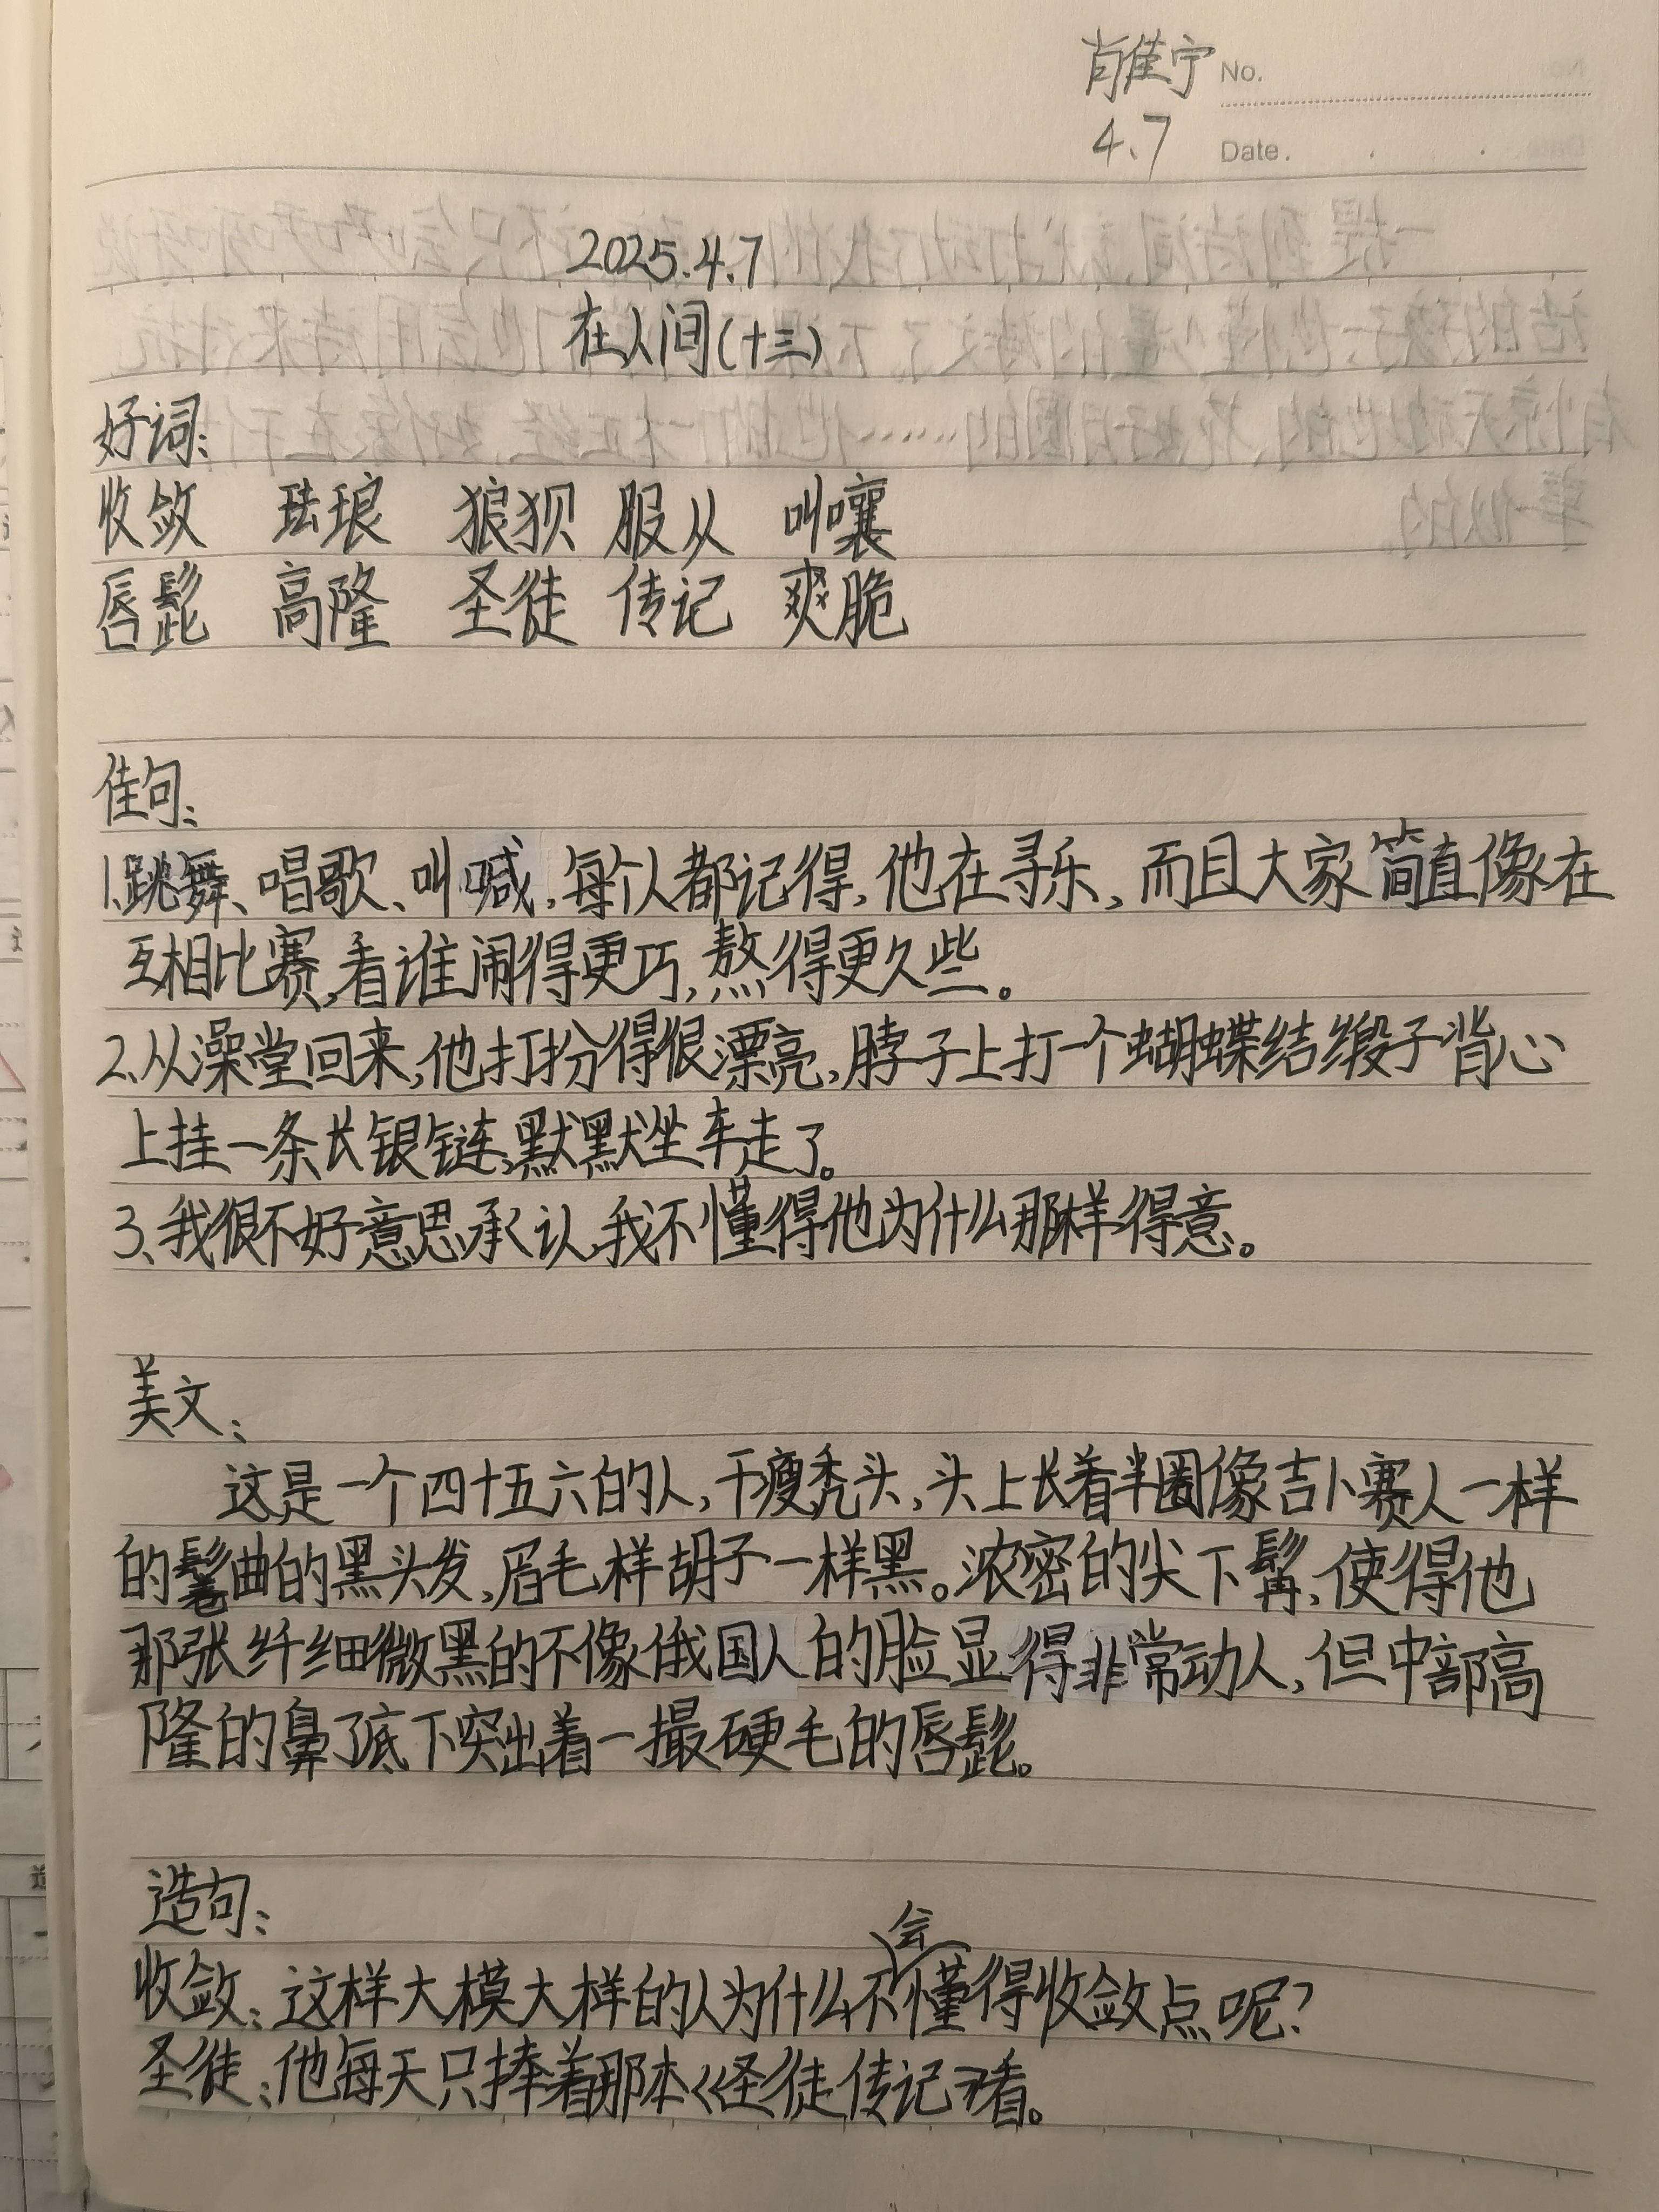 肖佳宁 No.
4.7 Date.
2025.4.7
在人间(十三)
好词:
收敛 珐琅 狼狈 服从 叫嚷
唇髭 高隆 圣徒 传记 爽脆
佳句:
1.跳舞、唱歌、叫喊,每个人都记得,他在寻乐,而且大家简直像在
互相比赛,看谁闹得更巧,熬得更久些。
2.从澡堂回来,他打扮得很漂亮,脖子上打一个蝴蝶结缎子背心
上挂一条长银链,默默坐车走了。
3.我很不好意思承认,我不懂得他为什么那样得意。
美文:
这是一个四十五六的人,干瘦秃头,头上长着半圈像吉卜赛人一样
的鬈曲的黑头发,眉毛样胡子一样黑。浓密的尖下髯,使得他
那张纤细微黑的不像俄国人的脸显得非常动人,但中部高
隆的鼻子底下突出着一撮硬毛的唇髭。
造句:
收敛:这样大模大样的人为什么不会懂得收敛点呢?
圣徒:他每天只捧着那本《圣徒传记》看。